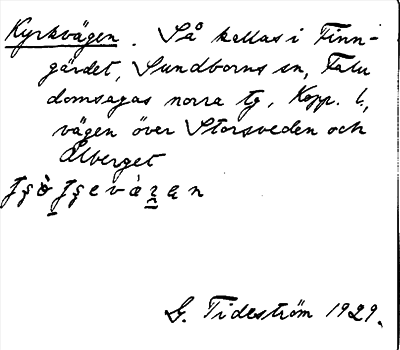 Kyrkvägen. Så kallas i Finn-
gärdet, Sundborns sn, Falu
domsagas norra tg, Kopp. l.,
vägen över Storsveden och
Ålberget
G. Tideström 1929.